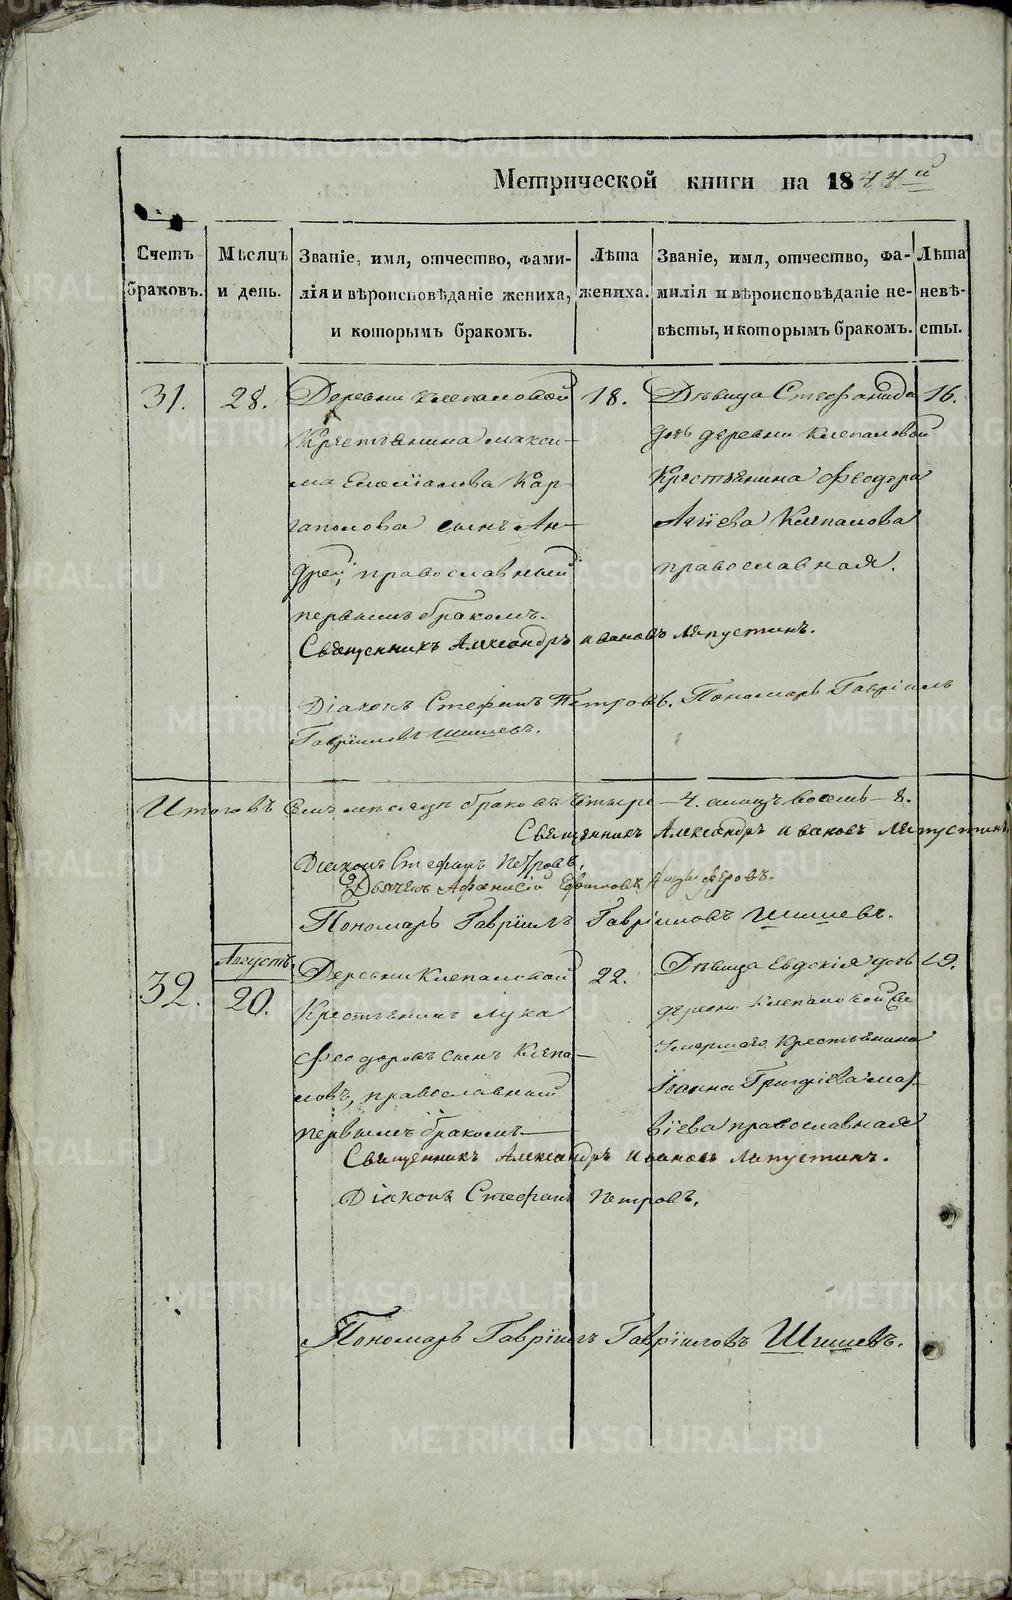 Метрической книги на 1844й
Счетъ браковъ.
Мѣсяцъ и день.
Званіе, имя, отчество, фами-
лія и вѣроисповѣданіе жениха,
и которымъ бракомъ.
Лѣта
жениха.
Званіе, имя, отчество, фа-
милія и вѣроисповѣданіе не-
вѣсты, и которымъ бракомъ.
Лѣта
невѣ-
сты.
31.
28.
Деревни Клепаловой
Крестьянина Макси-
ма Кар-
гаполова сынъ Ан-
дрей, православный
первымъ бракомъ.
18.
Дѣвица Стефанида
дочь деревни Клепаловой
Крестьянина Феодора
Клепалова
православная.
16.
Священникъ Александръ Ивановъ Ляпустинъ.
Діаконъ Стефанъ Петровъ. Пономарь Гавріилъ
Гавріиловъ Шишевъ.
Итого въ семъ месяце браковъ четыре — 4. лицъ восемь — 8.
Священникъ Александръ Ивановъ Ляпустинъ.
Діаконъ Стефанъ Петровъ.
Дьячекъ Афанасій Ефимовъ
Пономарь Гавріилъ Гавріиловъ Шишевъ.
32.
Августъ.
20.
Деревни Клепаловой
Крестьянинъ Лука
Феодоровъ сынъ Клепа-
ловъ, православный
первымъ бракомъ —
22.
Дѣвица Евдокія дочь
деревни Клепаловой
умершаго крестьянина
Іоанна Григріева Мат-
віева православная
19.
Священникъ Александръ Ивановъ Ляпустинъ.
Діаконъ Стефанъ Петровъ.
Пономарь Гавріилъ Гавріиловъ Шишевъ.
METRIKI.GASO-URAL.RU